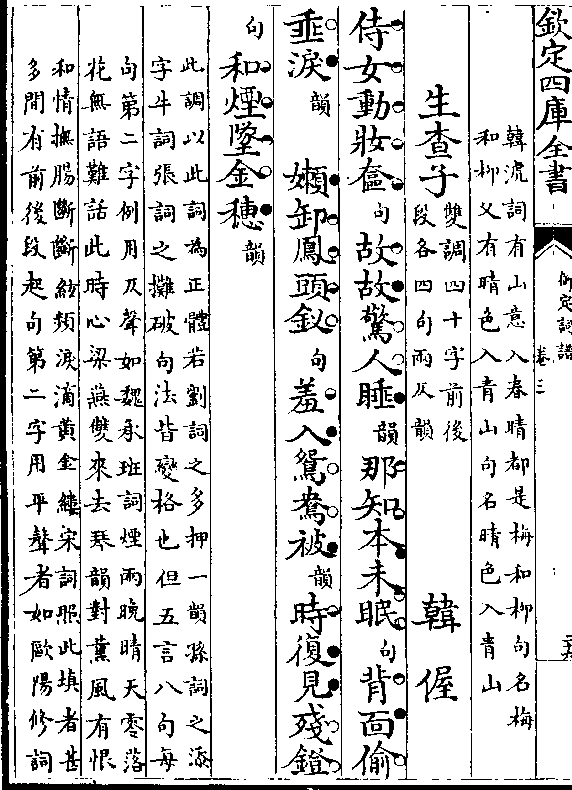 欽定四庫全書
御定詞譜
卷三
韓淲詞有山意入春晴都是梅和柳句名梅
和柳又有晴色入青山句名晴色入青山
生查子
雙調四十字前後
段各四句兩仄韻
韓偓
侍女動妝奩句故故驚人睡韻那知本未眠句背面偷
垂淚韻嬾卸鳳頭釵句羞入鴛鴦被韻時復見殘鐙
句和煙墜金穗韻
此調以此詞為正體若劉詞之多押一韻孫詞之添
字牛詞張詞之攤破句法皆變格也但五言八句每
句第二字例用仄聲如魏承班詞煙雨晚晴天零落
花無語難話此時心梁燕雙來去琴韻對薰風有恨
和情撫腸斷斷絃頻淚滴黃金縷宋詞照此填者甚
多間有前後段起句第二字用平聲者如歐陽修詞